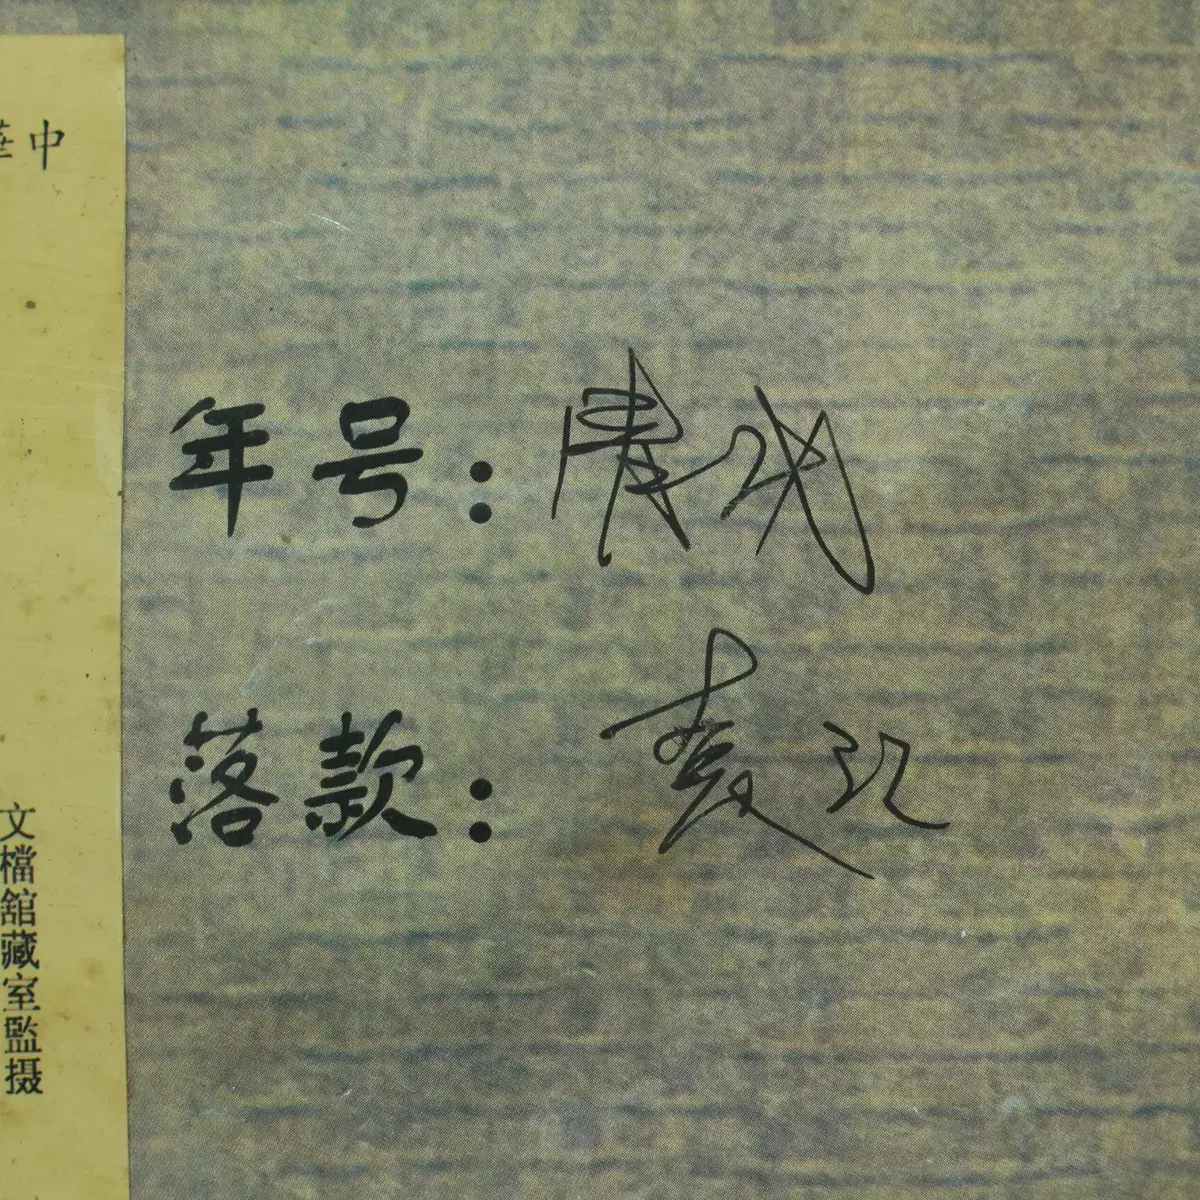 華中
年号：清代
落款：袁江
文檔舘藏室監摄